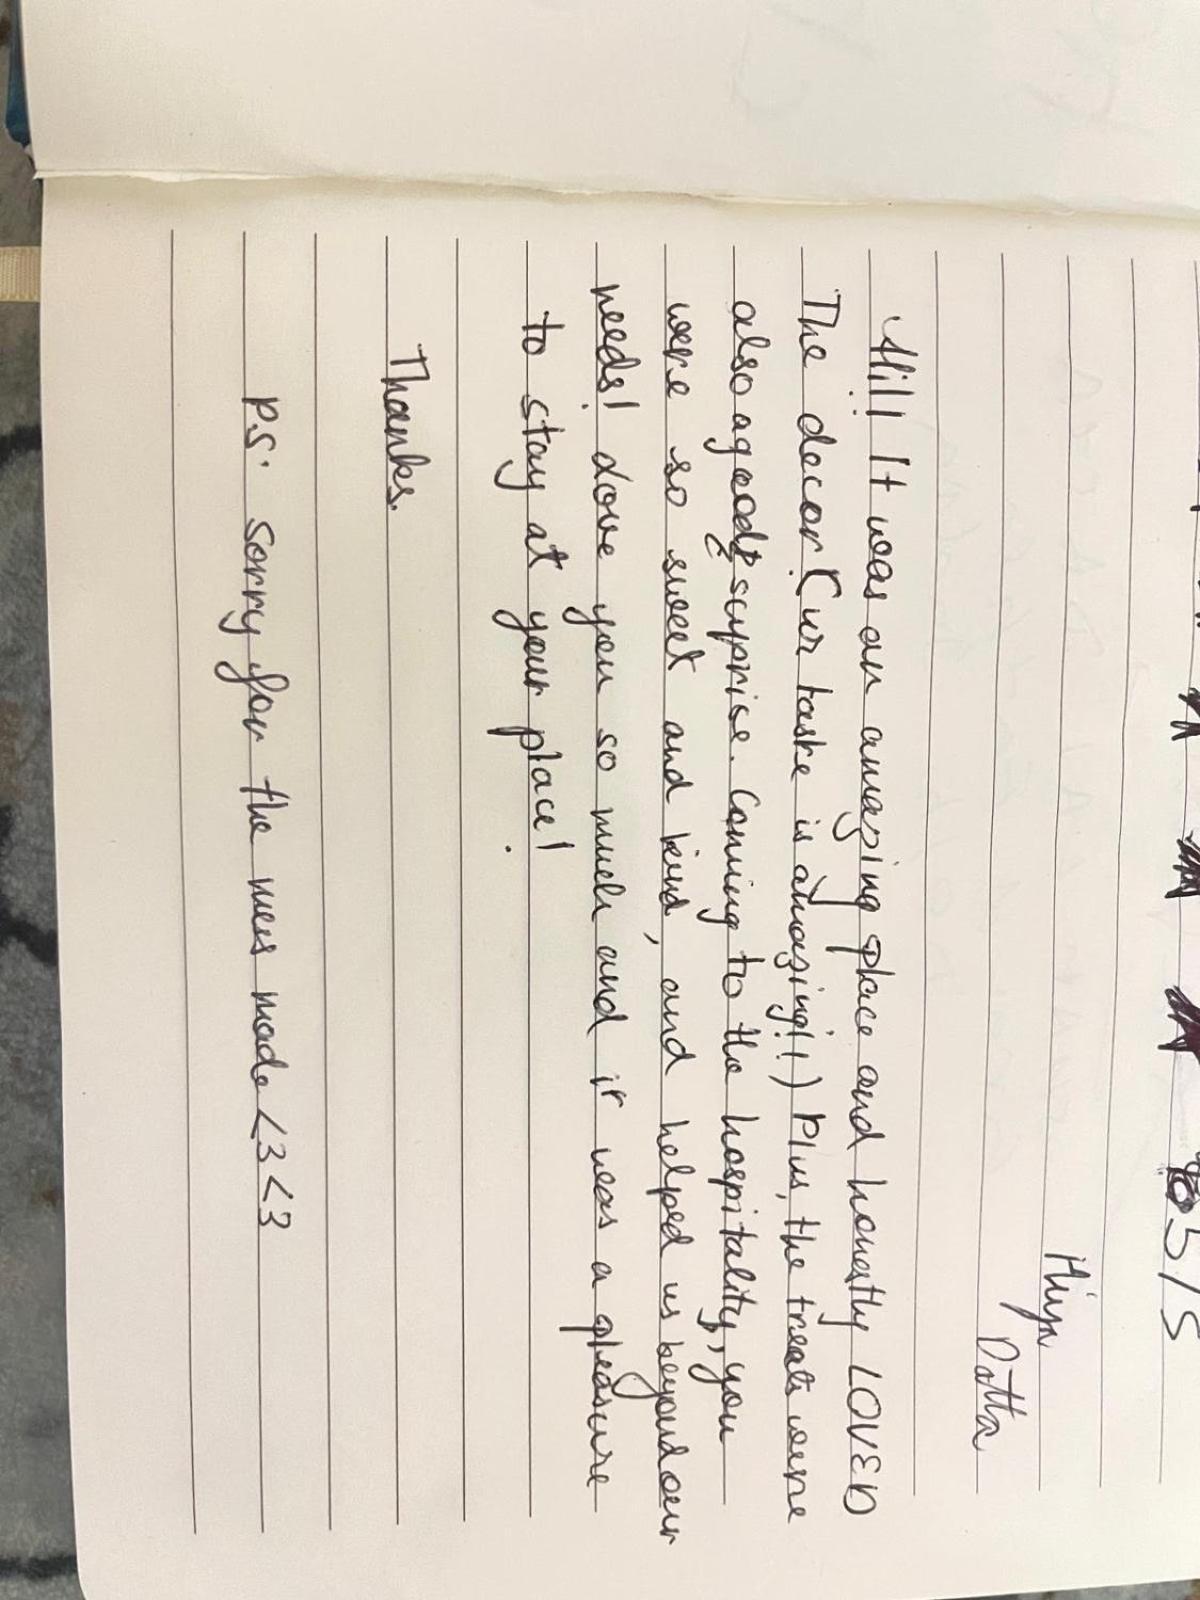 5/5
Hiya
Datta
Hi!! It was an amazing place and honestly LOVED
The decor (ur taske is amazing!!) Plus, the treats were
also a good surprise. Coming to the hospitality, you
were so sweet and kind, and helped us beyond our
needs! Love you so much and it was a pleasure
to stay at your place!
Thanks.
P.S. Sorry for the mess made <3 <3